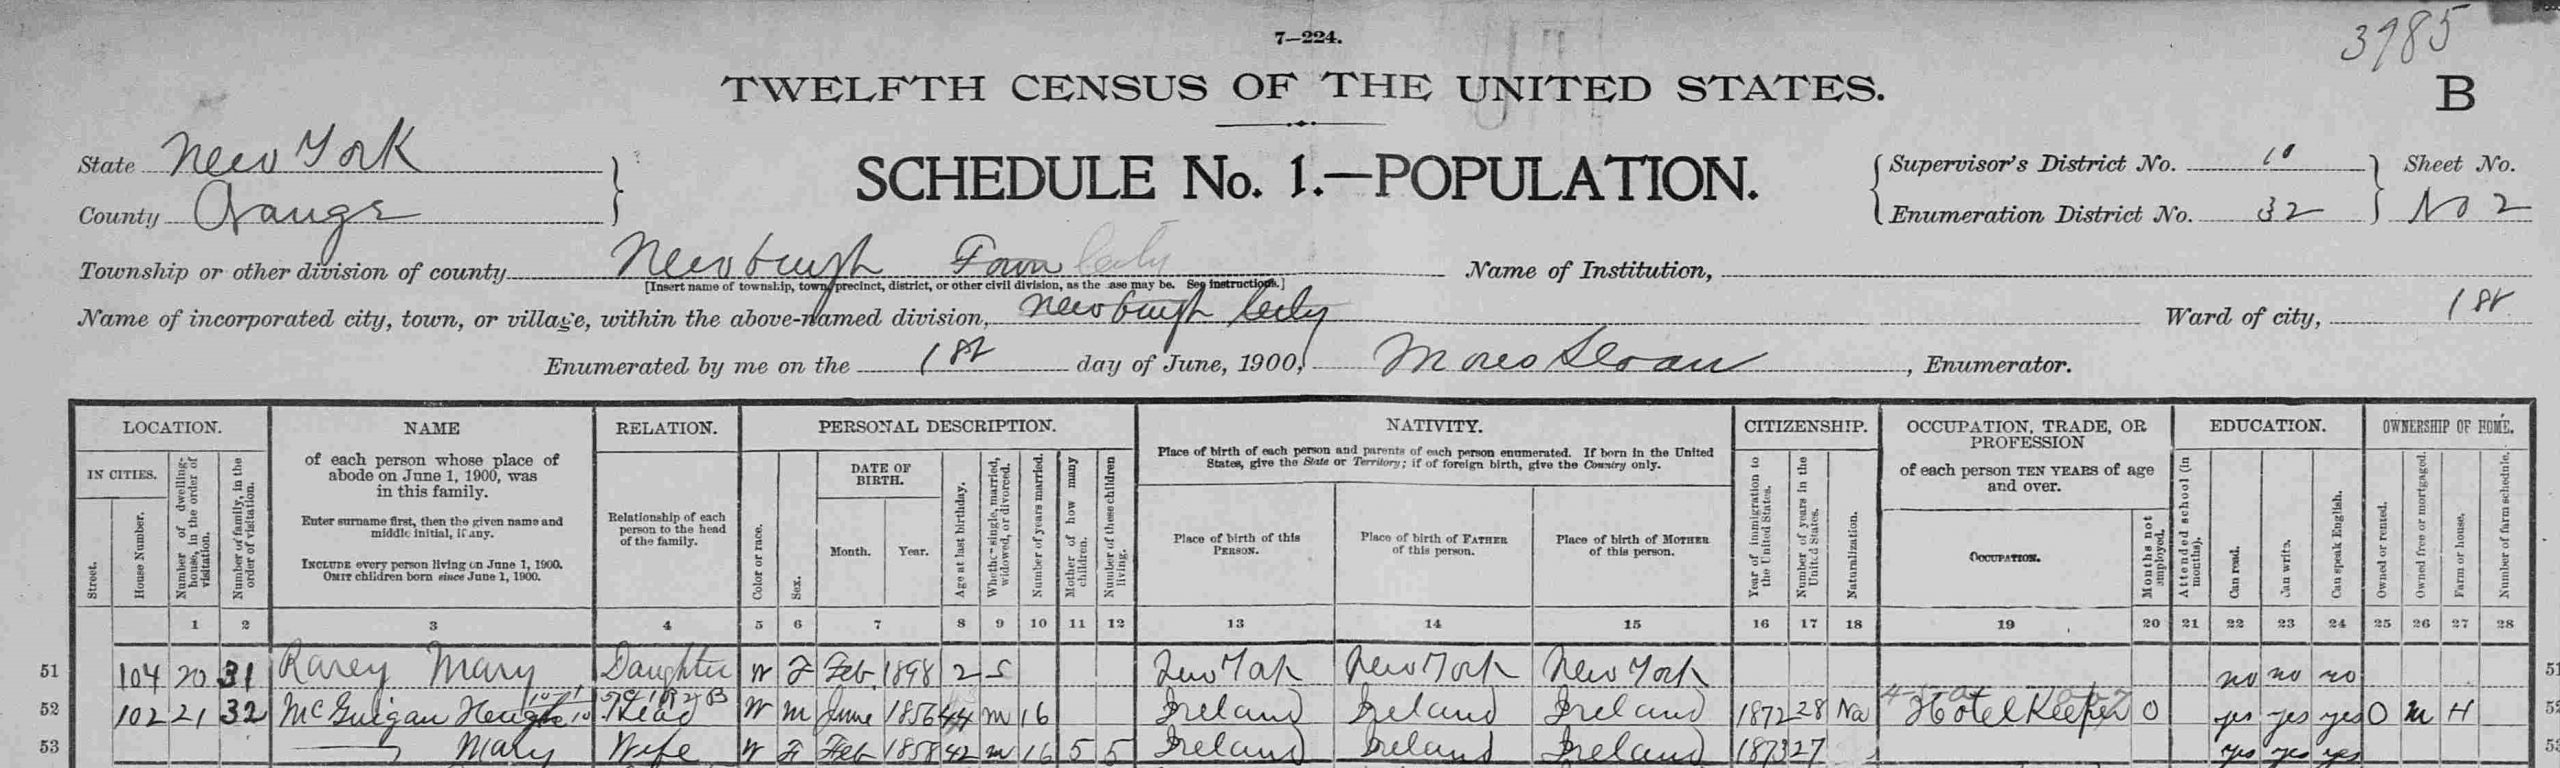 7—224.
3985
TWELFTH CENSUS OF THE UNITED STATES.
B
State New York
County Orange
SCHEDULE No. 1.—POPULATION.
Supervisor's District No. 10
Enumeration District No. 32
Sheet No.
No 2
Township or other division of county Newburgh Town City
Name of Institution,
[Insert name of township, town, precinct, district, or other civil division, as the case may be. See instructions.]
Name of incorporated city, town, or village, within the above-named division, Newburgh City
Ward of city, 1st
Enumerated by me on the 1st day of June, 1900, Moses Sloan, Enumerator.
LOCATION.
IN CITIES.
Street.
House Number.
Number of dwelling-house, in the order of visitation.
Number of family, in the order of visitation.
NAME
of each person whose place of abode on June 1, 1900, was in this family.
Enter surname first, then the given name and middle initial, if any.
INCLUDE every person living on June 1, 1900.
OMIT children born since June 1, 1900.
RELATION.
Relationship of each person to the head of the family.
PERSONAL DESCRIPTION.
Color or race.
Sex.
DATE OF BIRTH.
Month.
Year.
Age at last birthday.
Whether single, married, widowed, or divorced.
Number of years married.
Mother of how many children.
Number of these children living.
NATIVITY.
Place of birth of each person and parents of each person enumerated. If born in the United States, give the State or Territory; if of foreign birth, give the Country only.
Place of birth of this PERSON.
Place of birth of FATHER of this person.
Place of birth of MOTHER of this person.
CITIZENSHIP.
Year of immigration to the United States.
Number of years in the United States.
Naturalization.
OCCUPATION, TRADE, OR PROFESSION
of each person TEN YEARS of age and over.
OCCUPATION.
Months not employed.
EDUCATION.
Attended school (in months).
Can read.
Can write.
Can speak English.
OWNERSHIP OF HOME.
Owned or rented.
Owned free or mortgaged.
Farm or house.
Number of farm schedule.
1 2 3 4 5 6 7 8 9 10 11 12 13 14 15 16 17 18 19 20 21 22 23 24 25 26 27 28
51 104 20 31 Rarey Mary Daughter W F Feb 1898 2 S New York New York New York no no no 51
52 102 21 32 McGuigan Hough Head W M June 1856 44 M 16 Ireland Ireland Ireland 1872 28 Na Hotel Keeper 0 yes yes yes O M H 52
53 Mary Wife W F Feb 1858 42 M 16 5 5 Ireland Ireland Ireland 1873 27 yes yes yes 53